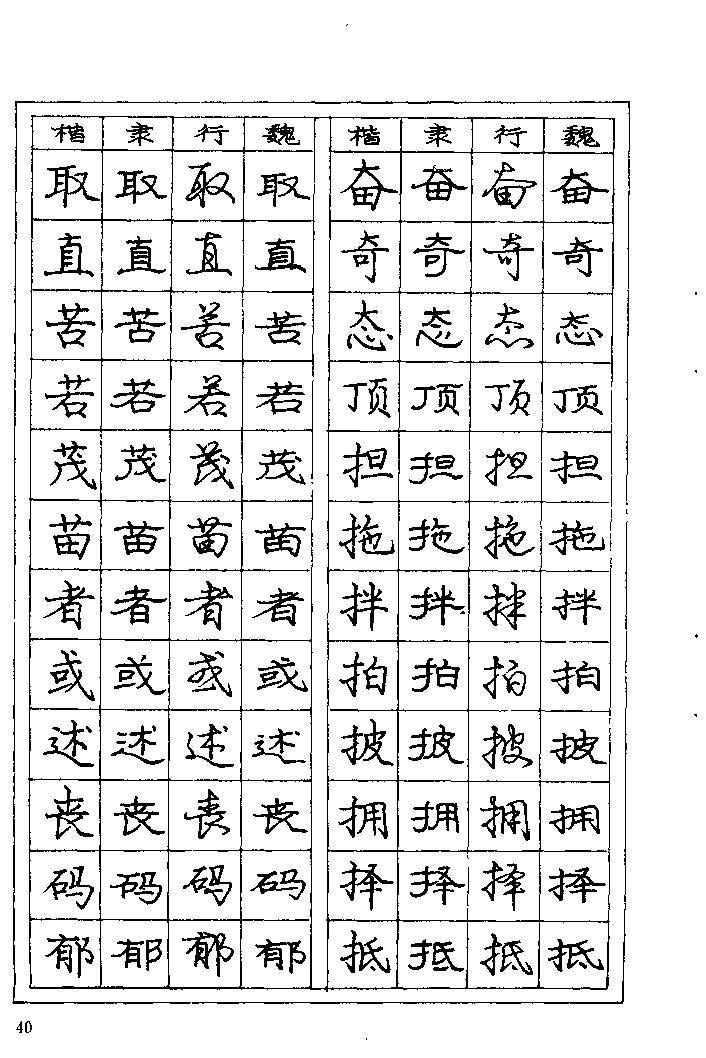 楷 隶 行 魏 楷 隶 行 魏
取 取 取 取 奋 奋 奋 奋
直 直 直 直 奇 奇 奇 奇
苦 苦 苦 苦 态 态 态 态
若 若 若 若 顶 顶 顶 顶
茂 茂 茂 茂 担 担 担 担
苗 苗 苗 苗 拖 拖 拖 拖
者 者 者 者 拌 拌 拌 拌
或 或 或 或 拍 拍 拍 拍
述 述 述 述 披 披 披 披
丧 丧 丧 丧 拥 拥 拥 拥
码 码 码 码 择 择 择 择
郁 郁 郁 郁 抵 抵 抵 抵
40